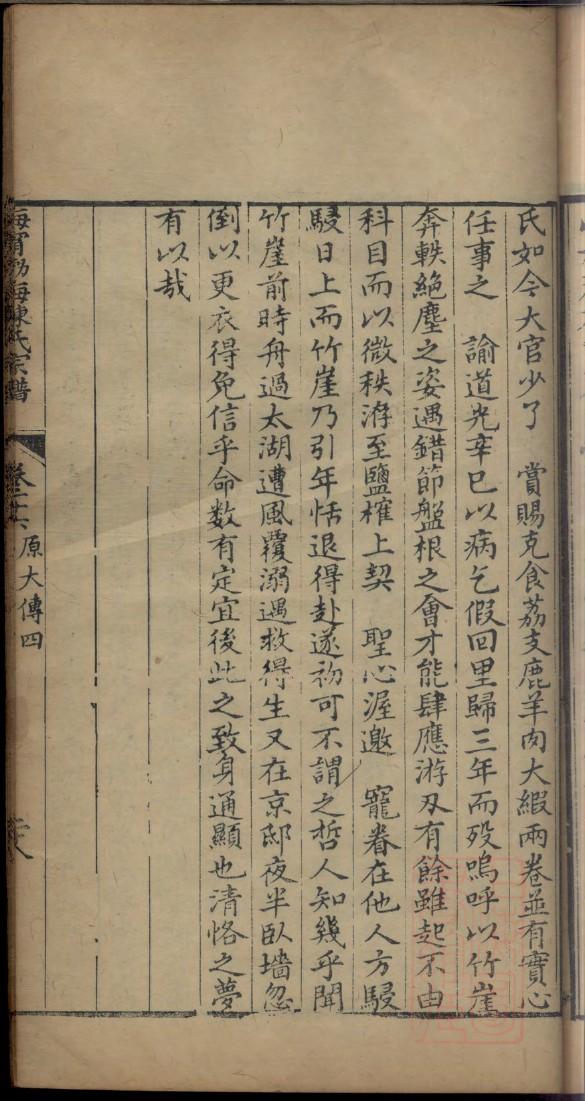 氏如今大官少了 賞賜克食荔支鹿羊肉大緞兩卷並有實心
任事之 諭道光辛巳以病乞假回里歸三年而歿嗚呼以竹崖
奔軼絕塵之姿遇錯節盤根之會才能肆應游刃有餘雖起不由
科目而以微秩洊至鹽𣙜上契 聖心渥邀 寵眷在他人方駸
駸日上而竹崖乃引年恬退得赴遂初可不謂之哲人知幾乎聞
竹崖前時舟過太湖遭風覆溺遇救得生又在京邸夜半臥墻忽
倒以更衣得免信乎命数有定宜後此之致身通顯也清恪之夢
有以哉
海寧渤海陳氏宗譜
卷二十六
原大傳四